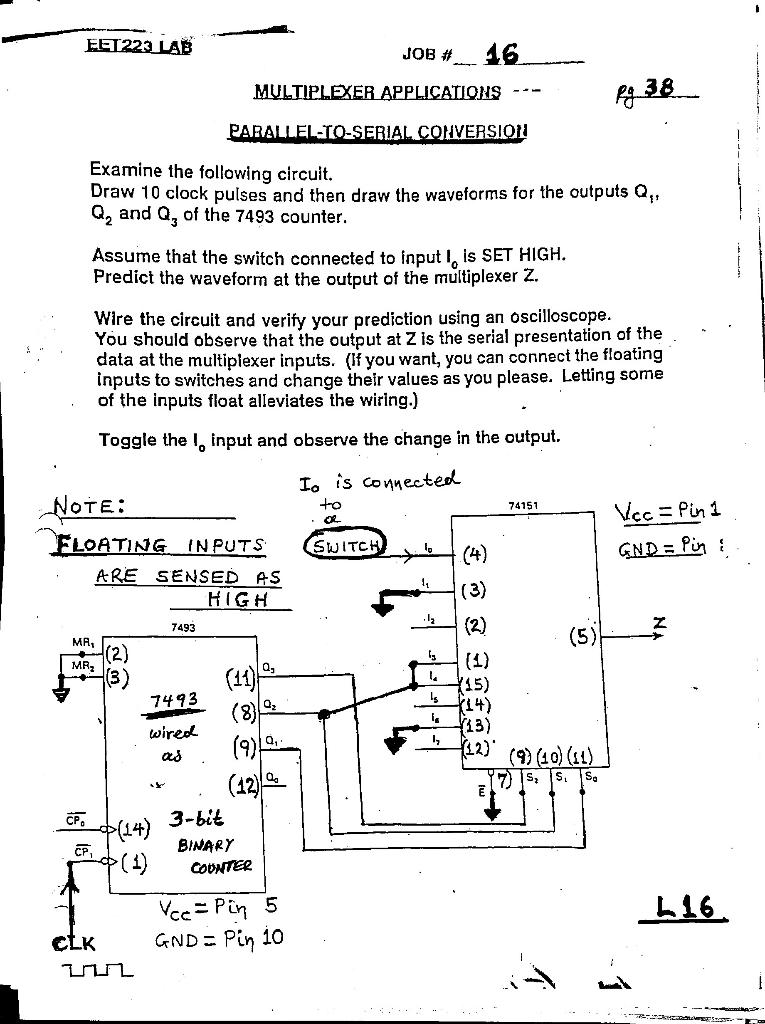 EET223 LAB
JOB # 16
MULTIPLEXER APPLICATIONS ---
Pg 38
PARALLEL-TO-SERIAL CONVERSION
Examine the following circuit.
Draw 10 clock pulses and then draw the waveforms for the outputs Q₁,
Q₂ and Q₃ of the 7493 counter.
Assume that the switch connected to input I₀ is SET HIGH.
Predict the waveform at the output of the multiplexer Z.
Wire the circuit and verify your prediction using an oscilloscope.
You should observe that the output at Z is the serial presentation of the
data at the multiplexer inputs. (If you want, you can connect the floating
inputs to switches and change their values as you please. Letting some
of the inputs float alleviates the wiring.)
Toggle the I₀ input and observe the change in the output.
I₀ is connected
to
a
SWITCH
NOTE:
FLOATING INPUTS
ARE SENSED AS
HIGH
74151
Vcc = Pin 1
GND = Pin
I₀ (4)
I₁ (3)
I₂ (2)
I₃ (1)
I₄ (15)
I₅ (14)
I₆ (13)
I₇ (12)
(5) Z
(9) (10) (11)
E̅ 7) S₂ S₁ S₀
7493
MR₁ (2)
MR₂ (3)
(11) Q₃
(8) Q₂
(9) Q₁
(12) Q₀
7493
wired
as
3-bit
BINARY
COUNTER
C̅P̅₀ (14)
C̅P̅₁ (1)
CLK
Vcc = Pin 5
GND = Pin 10
L16